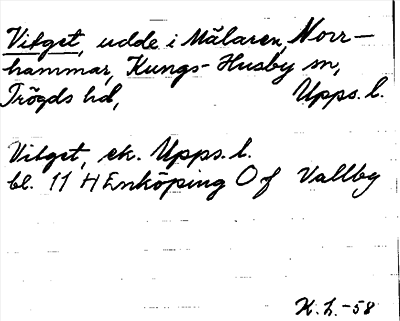 Vitget, udde i Mälaren, Norr-
hammar, Kungs-Husby sn,
Trögds hd, Upps. l.
Vitget, ek. Upps. l.
bl. 11 H Enköping O of Vallby
K. L. -58